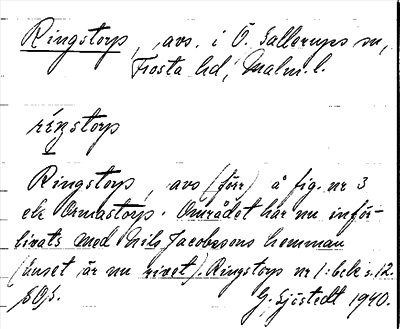 Ringstorp, avs. i Ö. Sallerups sn,
Frosta hd, Malm. l.
ríŋstorp
Ringstorp, avs (förr) å fig. nr 3
ele Ormastorp. Området har nu införlivats
med Nils Jacobssons hemman
(huset är nu rivet). Ringstorp nr 1: bek s. 12.
SOS.
G. Sjöstedt 1940.